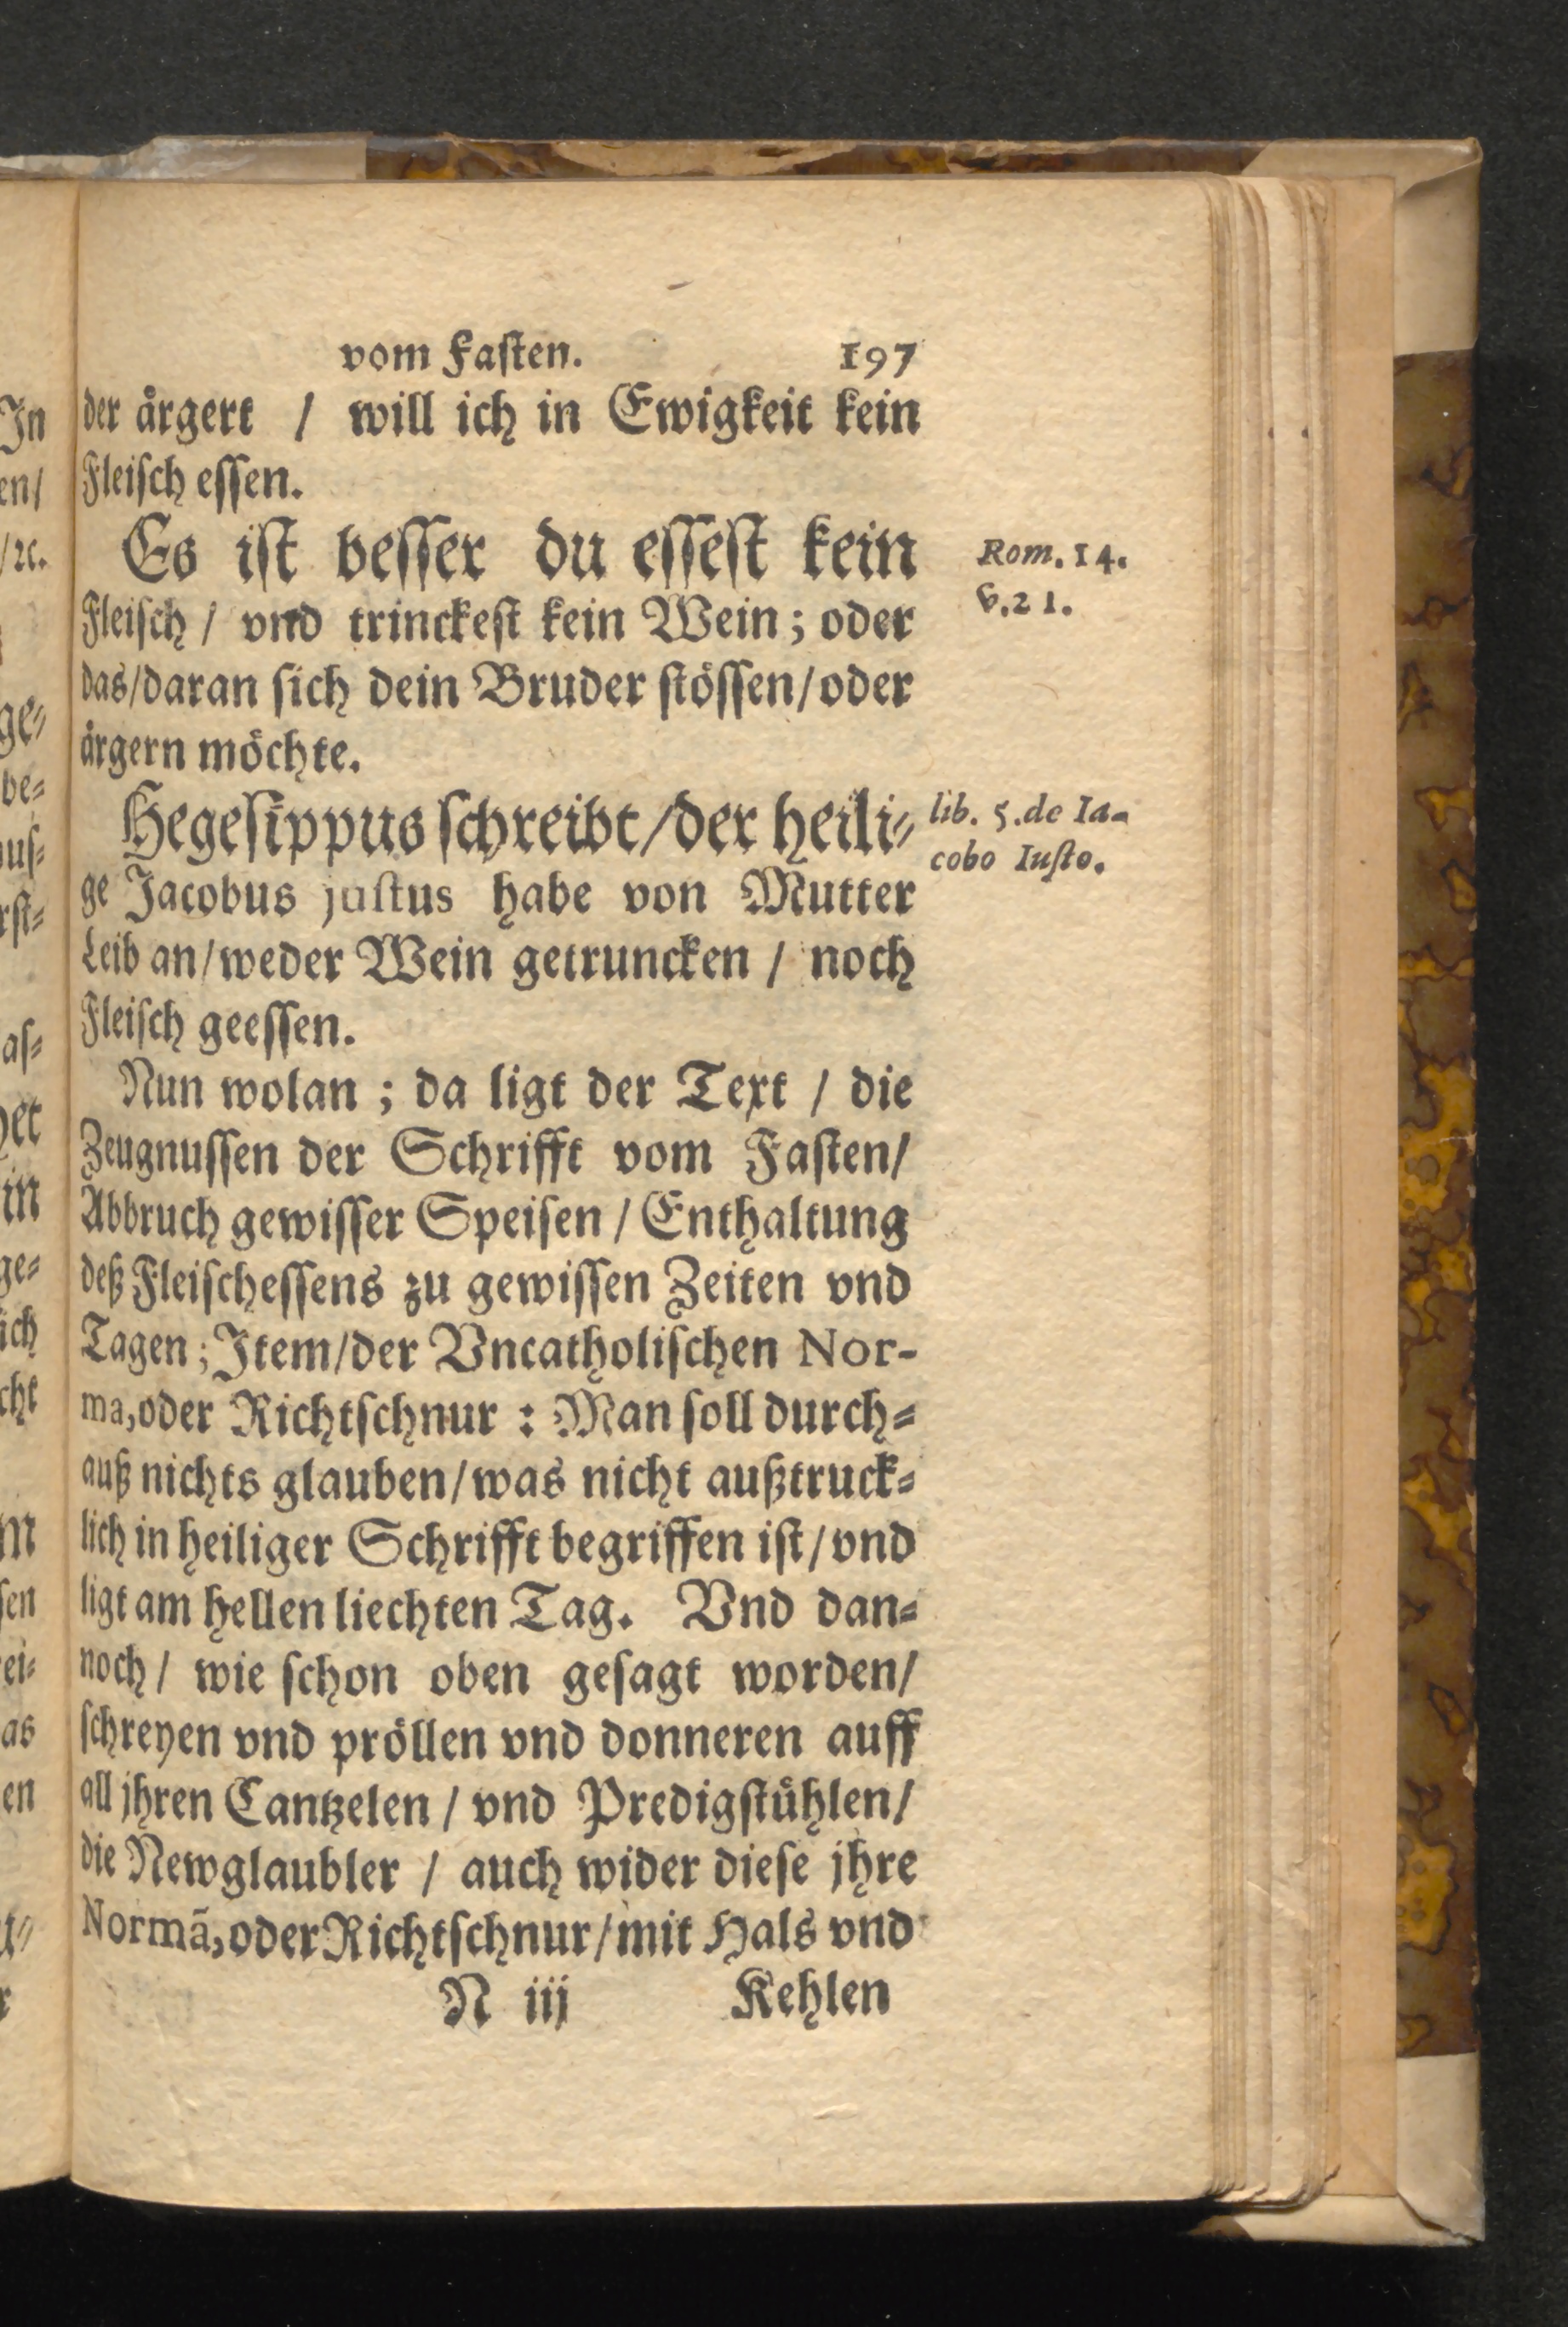 vom Faſten. 197
der aͤrgert / will ich in Ewigkeit kein
Fleiſch eſſen.
Es iſt beſſer du eſſeſt kein
Rom. 14.
Fleiſch / vnd trinckeſt kein Wein; oder
v.21.
das/daran ſich dein Bruder ſtoͤſſen/oder
aͤrgern moͤchte.
Hegeſippus ſchreibt/der heili-
lib. 5.de Ia-
ge Jacobus juſtus habe von Mutter
cobo Iuſto.
Leib an/weder Wein getruncken / noch
Fleiſch geeſſen.
Nun wolan ; da ligt der Text / die
Zeugnuſſen der Schrifft vom Faſten/
Abbruch gewiſſer Speiſen / Enthaltung
deß Fleiſcheſſens zu gewiſſen Zeiten vnd
Tagen; Item/der Vncatholiſchen Nor-
ma,oder Richtſchnur : Man ſoll durch-
auß nichts glauben/was nicht außtruck-
lich in heiliger Schrifft begriffen iſt/vnd
ligt am hellen liechten Tag. Vnd dan-
noch/ wie ſchon oben geſagt worden/
ſchreyen vnd proͤllen vnd donneren auff
all jhren Cantzelen / vnd Predigſtuͤhlen/
die Newglaubler / auch wider dieſe jhre
Normã,oder Richtſchnur/mit Hals vnd
N iij Kehlen